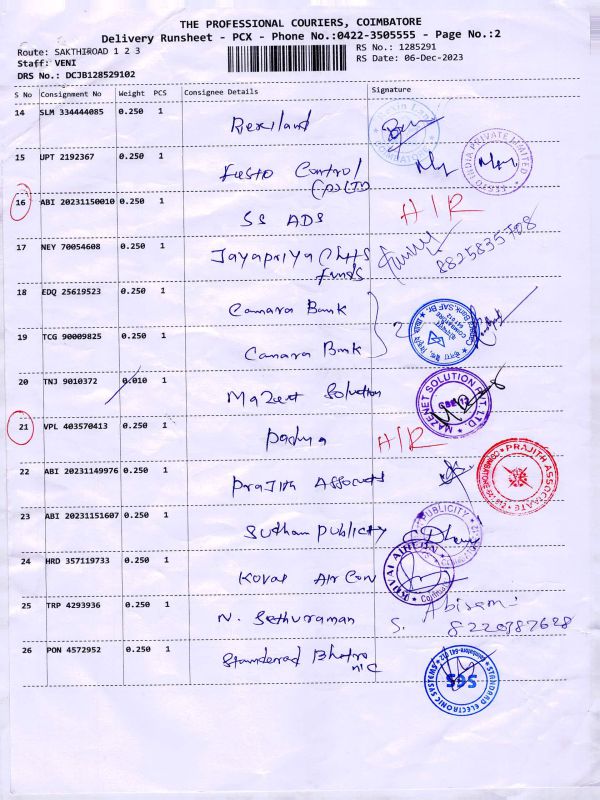 THE PROFESSIONAL COURIERS, COIMBATORE
Delivery Runsheet - PCX - Phone No.:0422-3505555 - Page No.:2
Route: SAKTHIROAD 1 2 3
RS No.: 1285291
Staff: VENI
RS Date: 06-Dec-2023
DRS No.: DCJB128529102
S No Consignment No Weight PCS Consignee Details Signature
14 SLM 334444085 0.250 1 Rexiland
15 UPT 2192367 0.250 1 Festo Control
INDIA PRIVATE LIMITED
16 ABI 20231150010 0.250 1 SS ADS H/R
17 NEY 70054608 0.250 1 Jayapriya Chits
funds
8825835708
18 EDQ 25619523 0.250 1 Canara Bank
19 TCG 90009825 0.250 1 Canara Bank 2
20 TNJ 9010372 0.010 1 Mazenet Solution
MAZENET SOLUTION PVT. LTD
21 VPL 403570413 0.250 1 Padma H/R
22 ABI 20231149976 0.250 1 Prajith Associates
PRAJITH ASSOCIATE
23 ABI 20231151607 0.250 1 Sutham Publicity
PUBLICITY
24 HRD 357119733 0.250 1 Kovai Air Con
KOVAI AIRCON
25 TRP 4293936 0.250 1 N. Sethuraman S. Abirami
8220787628
26 PON 4572952 0.250 1 Standerad Electro
nic
STANDARD ELECTRONIC SYSTEMS
SES